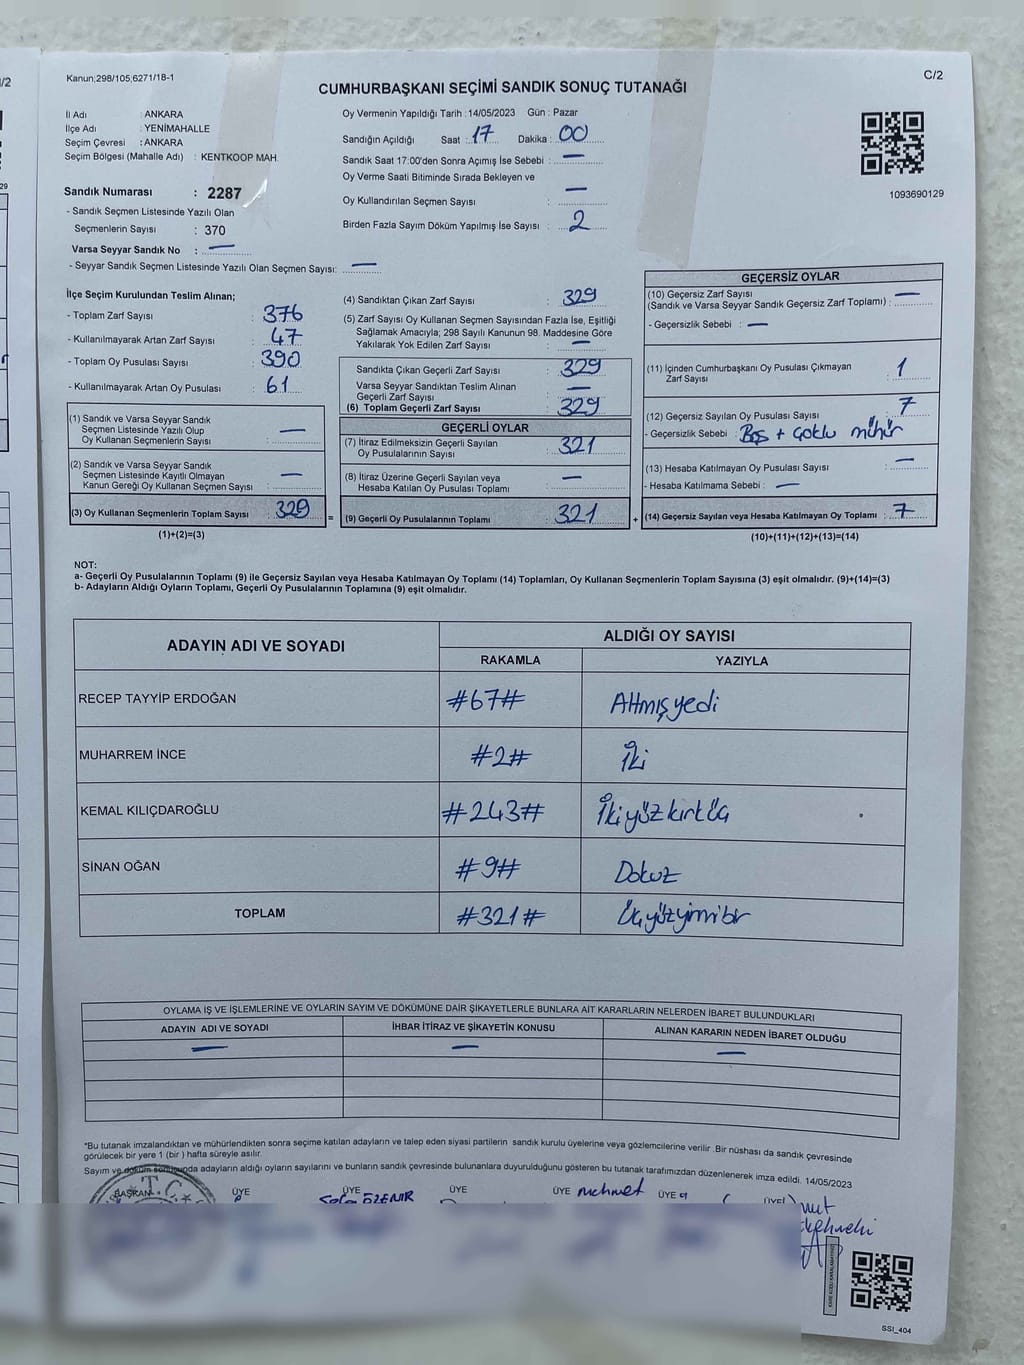 /2
29
Kanun;298/105;6271/18-1
C/2
CUMHURBAŞKANI SEÇİMİ SANDIK SONUÇ TUTANAĞI
İl Adı : ANKARA
İlçe Adı : YENİMAHALLE
Seçim Çevresi : ANKARA
Seçim Bölgesi (Mahalle Adı) : KENTKOOP MAH.
Oy Vermenin Yapıldığı Tarih :14/05/2023 Gün : Pazar
Sandığın Açıldığı Saat : 17 Dakika : 00
Sandık Saat 17:00'den Sonra Açımış İse Sebebi : —
Oy Verme Saati Bitiminde Sırada Bekleyen ve
Oy Kullandırılan Seçmen Sayısı : —
Birden Fazla Sayım Döküm Yapılmış İse Sayısı : 2
1093690129
Sandık Numarası : 2287
- Sandık Seçmen Listesinde Yazılı Olan
Seçmenlerin Sayısı : 370
Varsa Seyyar Sandık No : —
- Seyyar Sandık Seçmen Listesinde Yazılı Olan Seçmen Sayısı: —
İlçe Seçim Kurulundan Teslim Alınan;
- Toplam Zarf Sayısı : 376
- Kullanılmayarak Artan Zarf Sayısı : 47
- Toplam Oy Pusulası Sayısı : 390
- Kullanılmayarak Artan Oy Pusulası : 61
(1) Sandık ve Varsa Seyyar Sandık
Seçmen Listesinde Yazılı Olup
Oy Kullanan Seçmenlerin Sayısı : —
(2) Sandık ve Varsa Seyyar Sandık
Seçmen Listesinde Kayıtlı Olmayan
Kanun Gereği Oy Kullanan Seçmen Sayısı : —
(3) Oy Kullanan Seçmenlerin Toplam Sayısı : 329
(1)+(2)=(3)
(4) Sandıktan Çıkan Zarf Sayısı : 329
(5) Zarf Sayısı Oy Kullanan Seçmen Sayısından Fazla İse, Eşitliği
Sağlamak Amacıyla; 298 Sayılı Kanunun 98. Maddesine Göre
Yakılarak Yok Edilen Zarf Sayısı : —
Sandıkta Çıkan Geçerli Zarf Sayısı : 329
Varsa Seyyar Sandıktan Teslim Alınan
Geçerli Zarf Sayısı : —
(6) Toplam Geçerli Zarf Sayısı : 329
GEÇERLİ OYLAR
(7) İtiraz Edilmeksizin Geçerli Sayılan
Oy Pusulalarının Sayısı : 321
(8) İtiraz Üzerine Geçerli Sayılan veya
Hesaba Katılan Oy Pusulası Toplamı : —
= (9) Geçerli Oy Pusulalarının Toplamı : 321 +
GEÇERSİZ OYLAR
(10) Geçersiz Zarf Sayısı
(Sandık ve Varsa Seyyar Sandık Geçersiz Zarf Toplamı) : —
- Geçersizlik Sebebi : —
(11) İçinden Cumhurbaşkanı Oy Pusulası Çıkmayan
Zarf Sayısı : 1
(12) Geçersiz Sayılan Oy Pusulası Sayısı : 7
- Geçersizlik Sebebi : Boş + Çoklu mühür
(13) Hesaba Katılmayan Oy Pusulası Sayısı : —
- Hesaba Katılmama Sebebi : —
(14) Geçersiz Sayılan veya Hesaba Katılmayan Oy Toplamı : 7
(10)+(11)+(12)+(13)=(14)
NOT:
a- Geçerli Oy Pusulalarının Toplamı (9) ile Geçersiz Sayılan veya Hesaba Katılmayan Oy Toplamı (14) Toplamları, Oy Kullanan Seçmenlerin Toplam Sayısına (3) eşit olmalıdır. (9)+(14)=(3)
b- Adayların Aldığı Oyların Toplamı, Geçerli Oy Pusulalarının Toplamına (9) eşit olmalıdır.
ADAYIN ADI VE SOYADI
ALDIĞI OY SAYISI
RAKAMLA YAZIYLA
RECEP TAYYİP ERDOĞAN #67# Altmışyedi
MUHARREM İNCE #2# İki
KEMAL KILIÇDAROĞLU #243# İkiyüzkırküç
SİNAN OĞAN #9# Dokuz
TOPLAM #321# Üçyüzyirmibir
OYLAMA İŞ VE İŞLEMLERİNE VE OYLARIN SAYIM VE DÖKÜMÜNE DAİR ŞİKAYETLERLE BUNLARA AİT KARARLARIN NELERDEN İBARET BULUNDUKLARI
ADAYIN ADI VE SOYADI İHBAR İTİRAZ VE ŞİKAYETİN KONUSU ALINAN KARARIN NEDEN İBARET OLDUĞU
— — —
*Bu tutanak imzalandıktan ve mühürlendikten sonra seçime katılan adayların ve talep eden siyasi partilerin sandık kurulu üyelerine veya gözlemcilerine verilir. Bir nüshası da sandık çevresinde
görülecek bir yere 1 (bir ) hafta süreyle asılır.
Sayım ve döküm sonucunda adayların aldığı oyların sayılarını ve bunların sandık çevresinde bulunanlara duyurulduğunu gösteren bu tutanak tarafımızdan düzenlenerek imza edildi. 14/05/2023
BAŞKAN ÜYE ÜYE ÜYE mehmet ÜYE ÜYE
T.C.
SSI_404